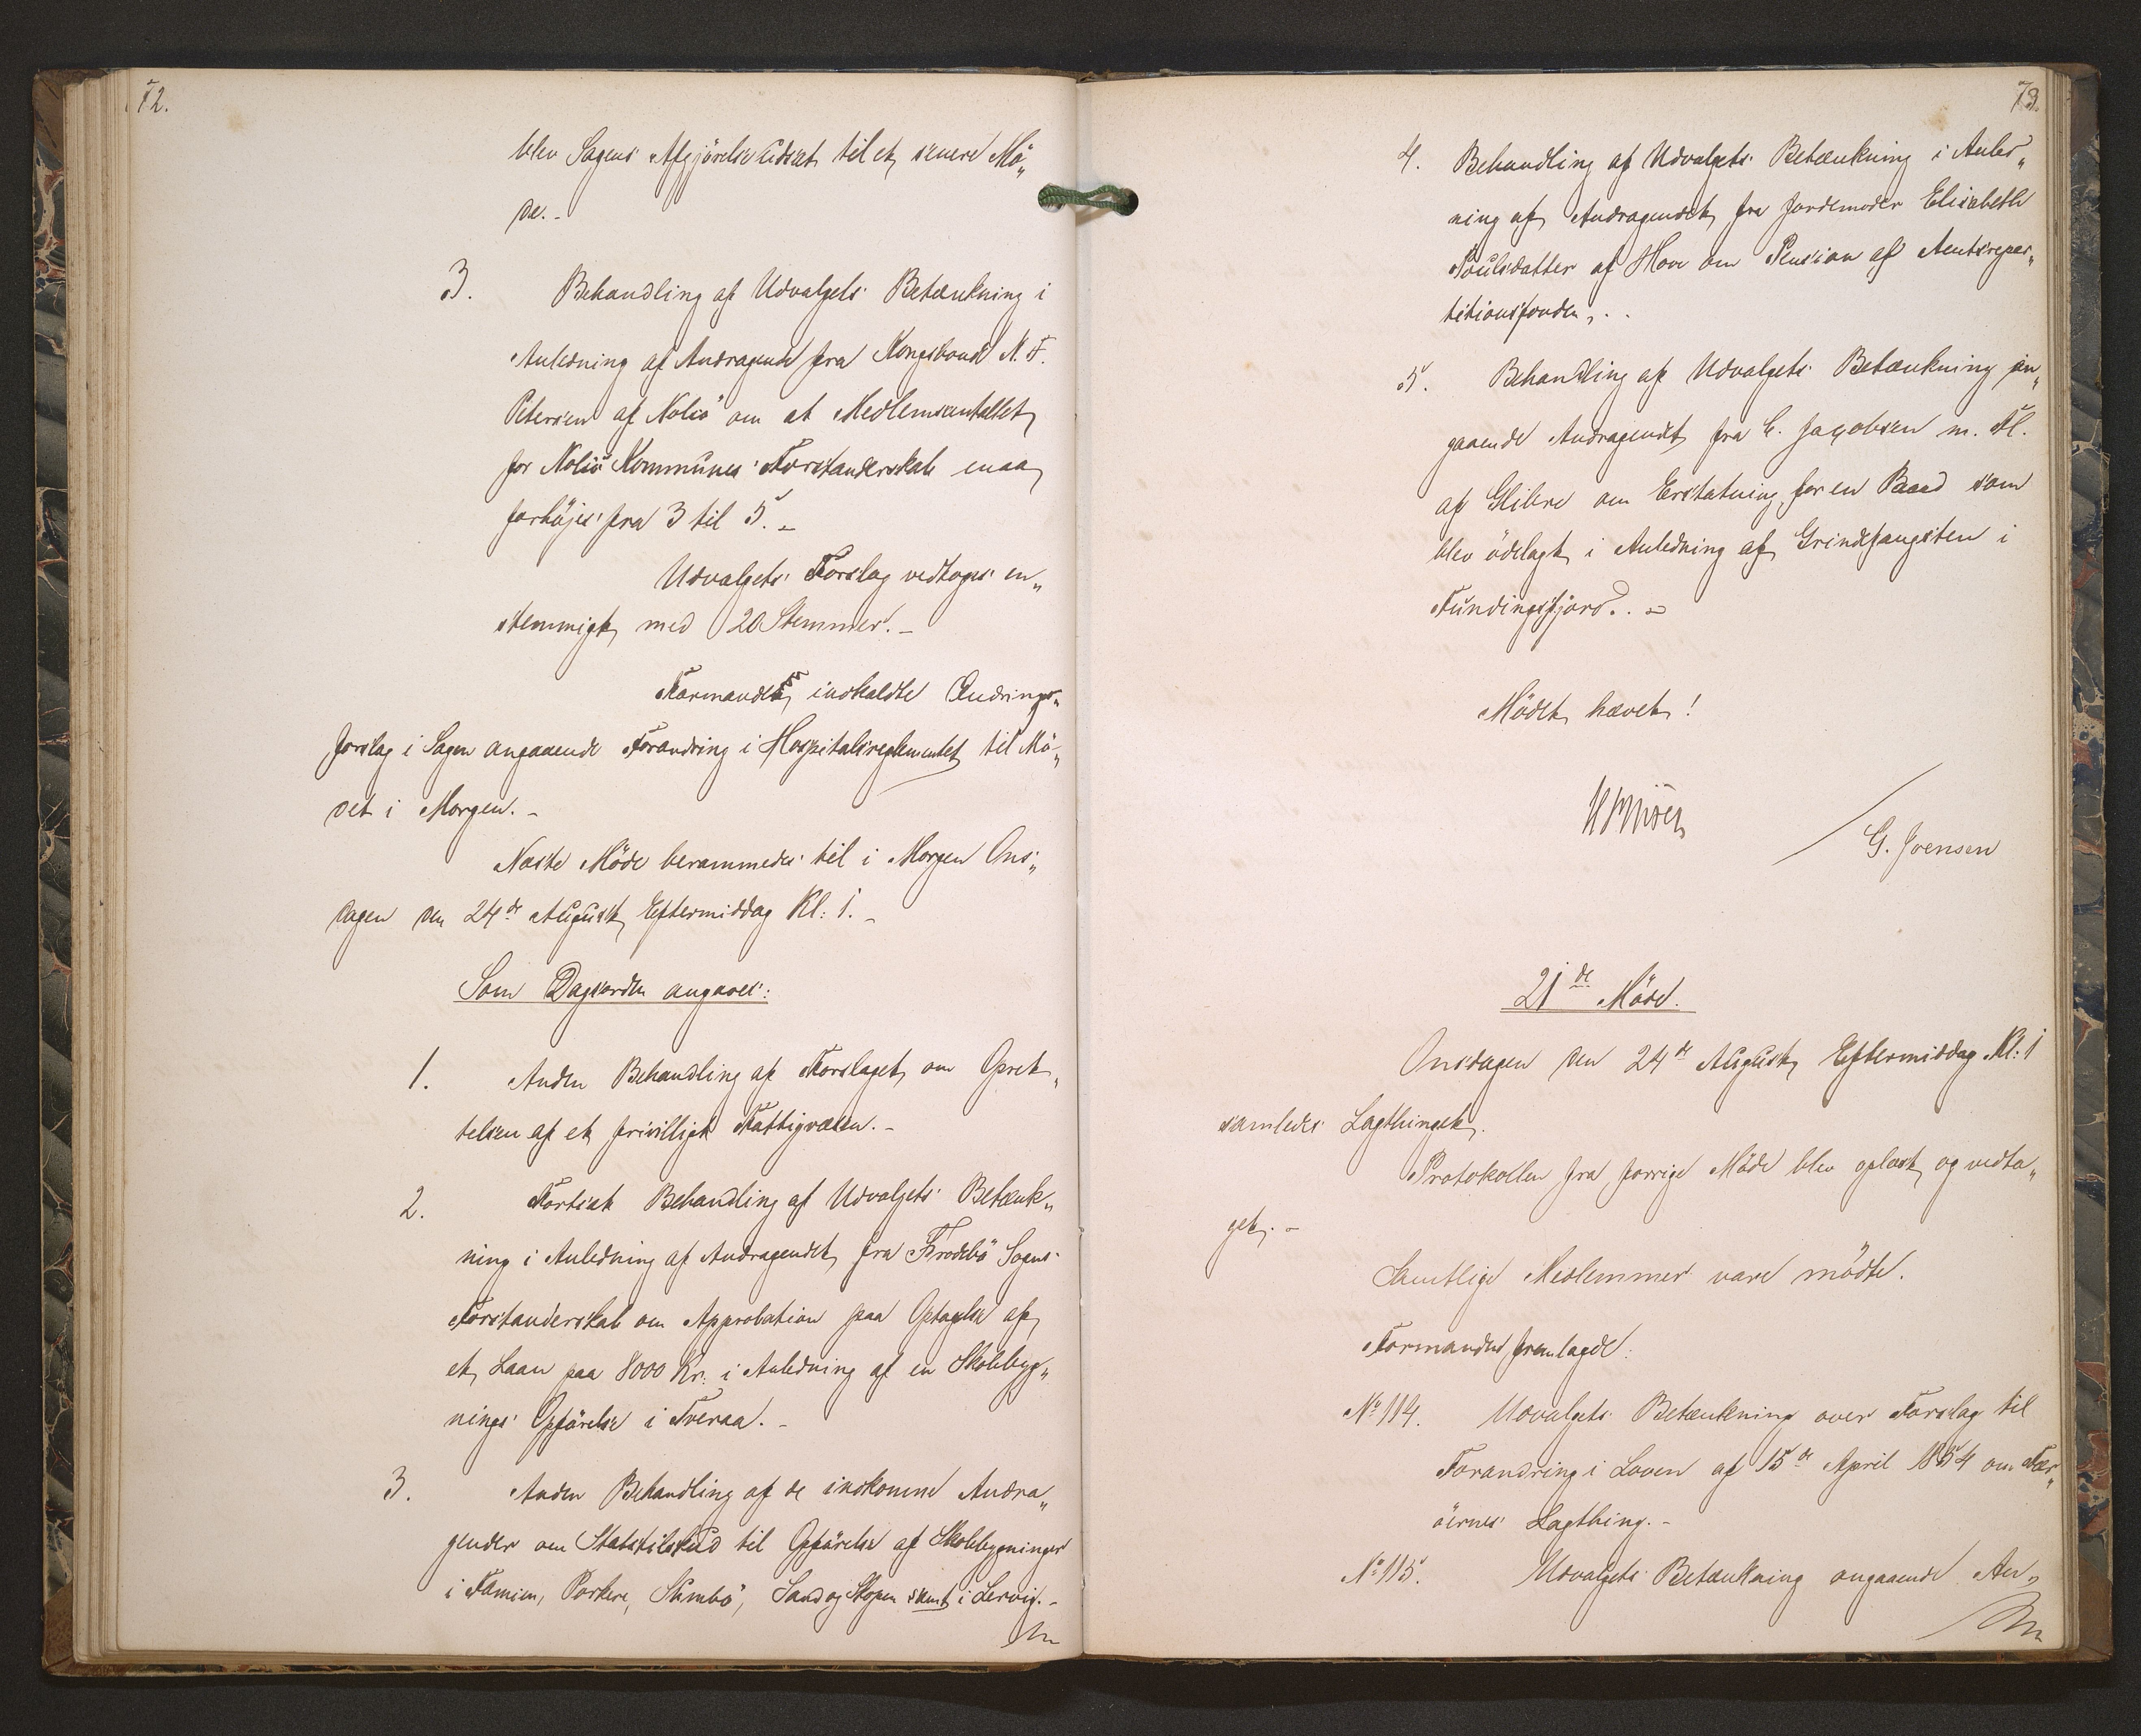 72.
blev Sagens Afgjörelse udsat til et senere Mö„
de. -
3. Behandling af Udvalgets Betænkning i
Anledning af Andragende fra Kongsbonde N. F.
Petersen af Nolsö om at Medlemsantallet
for Nolsö Kommunes Forstanderskab maa
forhöjes fra 3 til 5. -
Udvalgets Forslag vedtoges en„
stemmigt med 20 Stemmer. -
Formanden indkaldte Ændrings„
forslag i Sagen angaaende Forandring i Hospitalsreglementet til Mö„
det i Morgen. -
Næste Möde berammedes til i Morgen Ons„
dagen den 24de August Eftermiddag Kl: 1. -
Som Dagsorden angaves:
1. Anden Behandling af Forslaget om Opret„
telsen af et frivilligt Fattigvæsen. -
2. Fortsat Behandling af Udvalgets Betænk„
ning i Anledning af Andragendet fra Frodebö Sogns
Forstanderskab om Approbation paa Optagelse af
et Laan paa 8000 Kr: i Anledning af en Skolebyg„
nings Opförelse i Tveraa. -
3. Anden Behandling af de indkomne Andra„
gender om Statstilskud til Opförelse af Skolebygninger
i Famien, Porkere, Sumbö, Sand og Skopen samt i Lervig. -
73.
4. Behandling af Udvalgets Betænkning i Anled„
ning af Andragendet fra Jordemoder Elisabeth
Poulsdatter af Hove om Pension af Amtsrepar„
titionsfonden. .
5. Behandling af Udvalgets Betænkning an„
gaaende Andragendet fra C. Jacobsen m. Fl.
af Glibre om Erstatning for en Baad som
blev ödelagt i Anledning af Grindefangsten i
Fundingsfjord. . -
Mödet hævet!
G. Joensen
21de Möde.
Onsdagen den 24de August Eftermiddag Kl: 1
samledes Lagthinget.
Protokollen fra forrige Möde blev oplæst og vedta„
get. -
Samtlige Medlemmer vare mödte.
Formanden fremlagde:
No 114. Udvalgets Betænkning over Forslag til
Forandring i Loven af 15de April 1854 om Fær„
öernes Lagthing. -
No 115. Udvalgets Betænkning angaaende An„